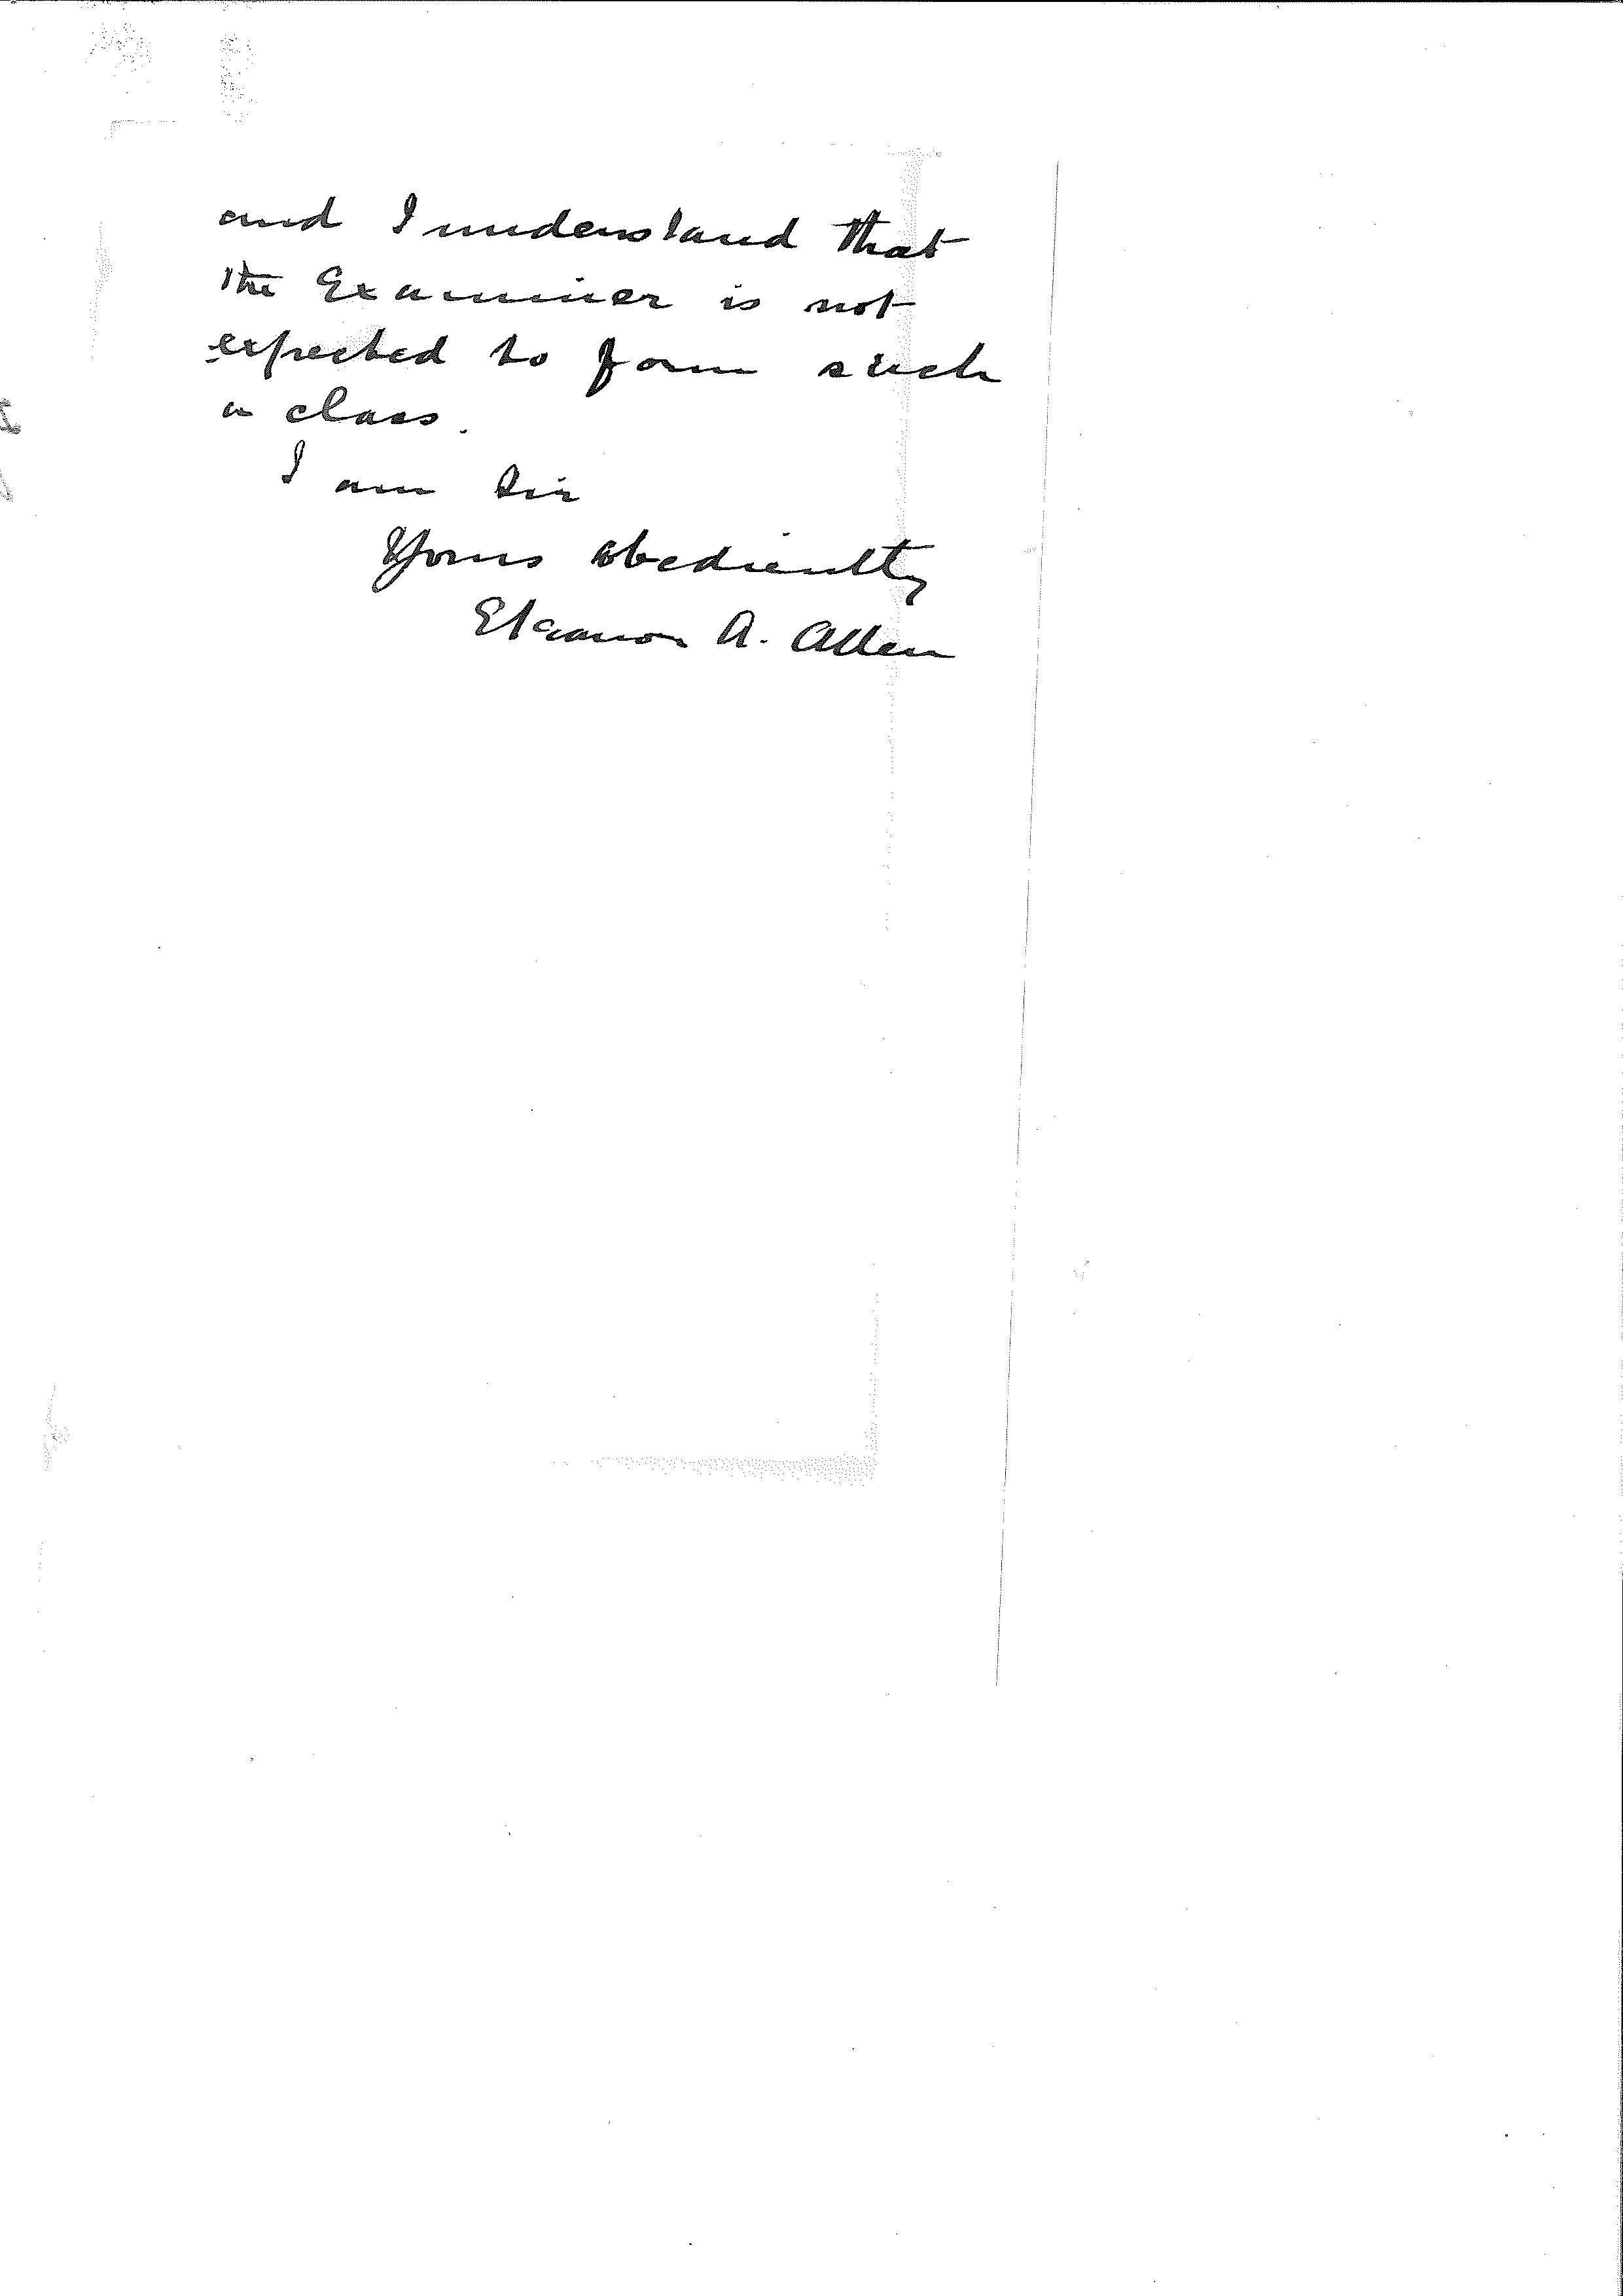 and I understand that
the Examiner is not
expected to form such
a class.
I am Sir
Yours obediently
Eleanor A. Allen